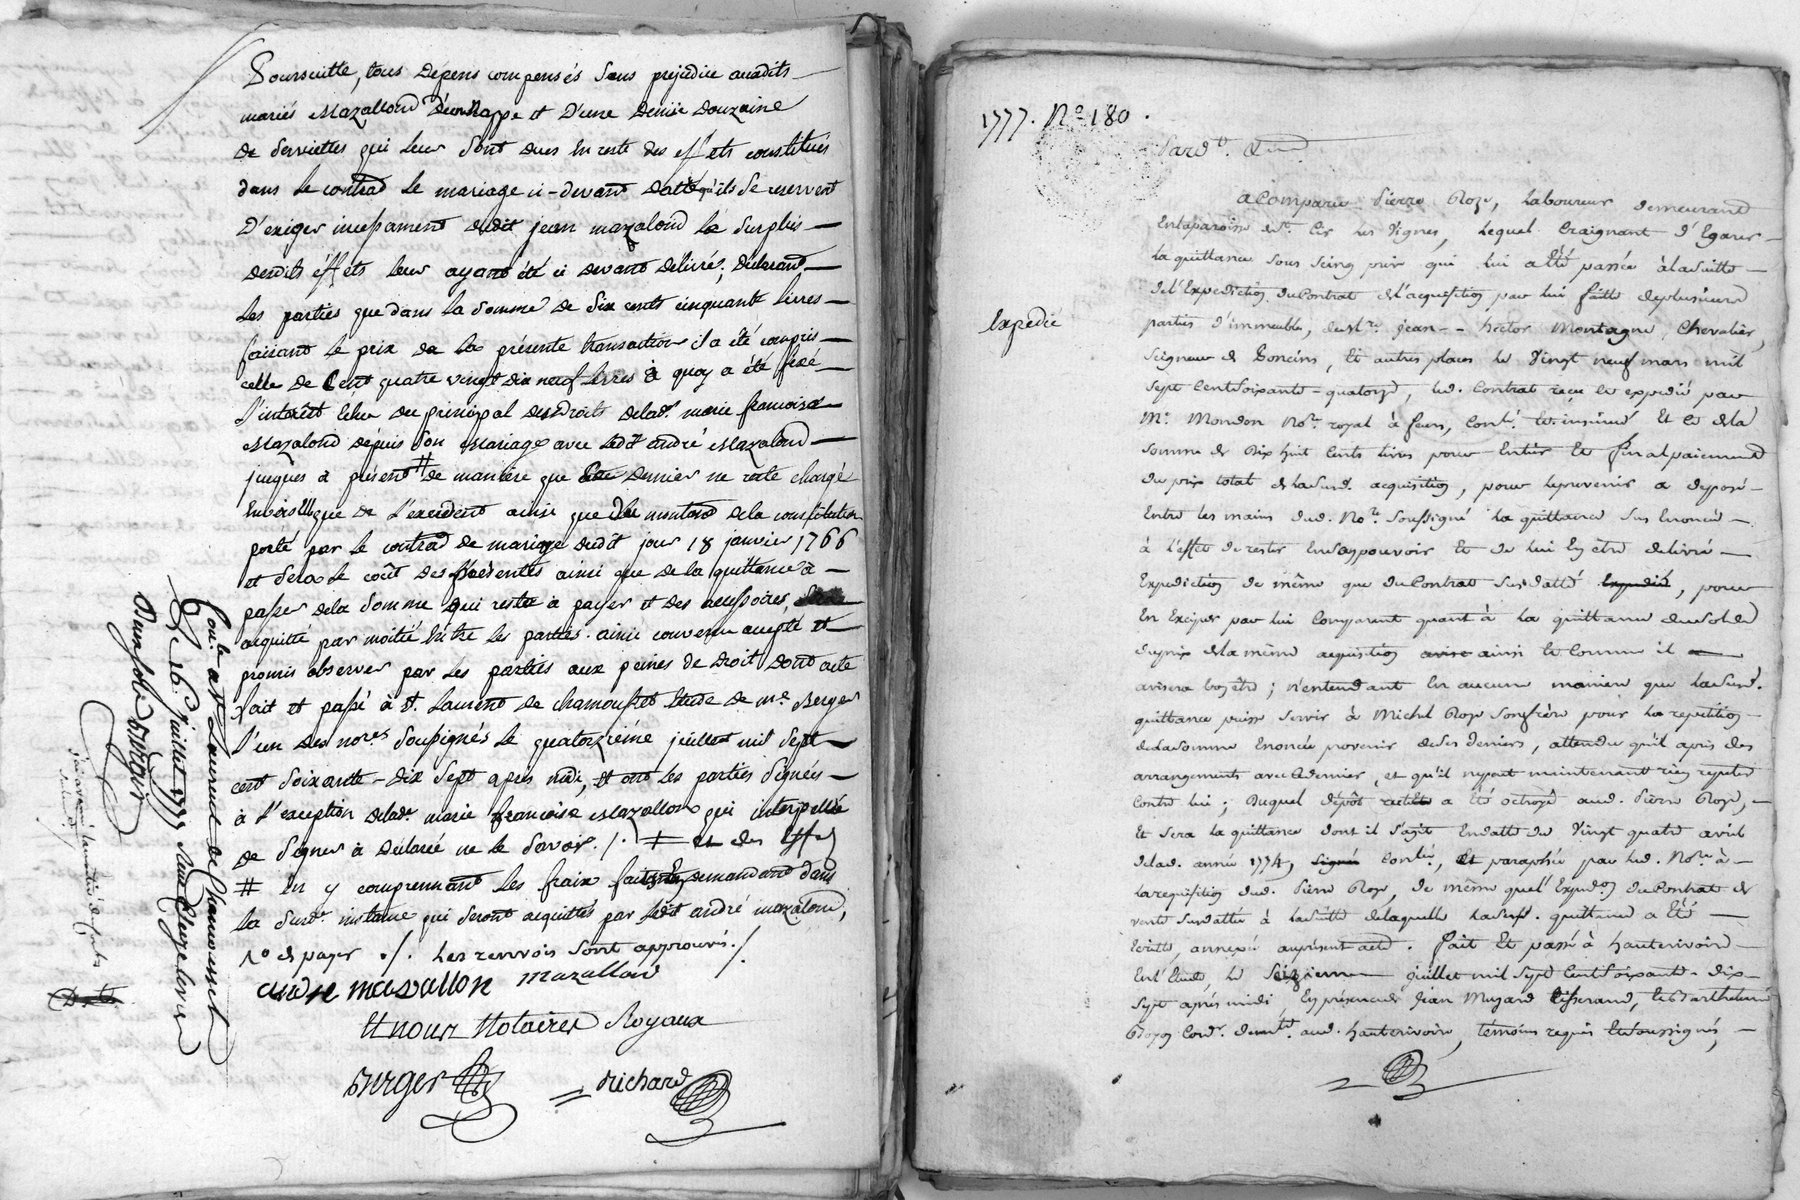 Poursuitte, tous dépens compensés sans prejudice auxdits
mariés Mazallond d'une Nappe et d'une demie douzaine
de serviettes qui leur sont dues en reste des effets constitués
dans le contrad de mariage ci-devant datté qu'ils se reservent
d'exiger incessament dudit jean mazalond le surplus
desdits éffets leur ayant été ci devant délivré; déclarant
les parties que dans la somme de six cents cinquante livres
faisant le prix de la présente transaction il a été compris
celle de Cent quatre vingt dix neuf livres à quoy a été fixé
l'intérêt échu du principal des droits delad. marie francoise
Mazalond dépuis son mariage avec ledit andré Mazalond
jusques à présent # de manière que dernier ne reste chargé
que de l'excedent ainsi que du montant dela constitution
porté par le contrad de mariage dudit jour 18 janvier 1766
et sera le coût des présentes ainsi que de la quittance à
passer dela somme qui reste à payer et des accessoires,
acquitté par moitié entre les parties. ainsi convenu accepté et
promis observer par les parties aux peines de droit dont acte
fait et passé à St. Laurent de Chamousset Etude de me. Berger
l'un des nores. soussignés le quatorzième juillet mil sept
cent soixante-dix sept après midi, et ont les parties signées
à l'exception delade. marie francoise Mazallon qui interpellée
de signer à déclaré ne le savoir ./. # et des effets
# En y comprennant les fraix faits en demandant dans
la susd. instance qui seront acquittés par ledit andré mazalond,
No. de pages ./. Les renvois sont approuvés ./.
andre mazallon mazallon
Et nous Notaires Royaux
Berger richard
Con.le à St Laurent de Chamousset
le 16 juillet 1777
Berger
1777. No. 180.
Pardt. 
Expedié
a Comparu Pierre Roze, Laboureur demeurand
En la paroisse de St. Cir les Vignes, lequel Craignant d'Egarer
la quittance sous seing privé qui lui a été passée à la suitte
de l'Expedition du Contrat d'acquisition par lui faitte de plusieurs
parties d'immeuble, de Mre. jean-hector Montagne Chevalier,
Seigneur de Poncins, Et autres places le Vingt neuf mars mil
sept Cent soixante-quatorze, led. Contrat recu et expedié par
Me. Mondon Nore. royal à feurs, Conlé. et insinué Et ce de la
somme de Dix huit Cents livres pour Entier et final paiement
du prix total de lasusd. acquisition, pour y parvenir a deposé
Entre les mains dud. Nore. soussigné la quittance sus Enoncée
à l'effet de rester En son pouvoir Et de lui En être delivré
Expedition de même que du Contrat susdatté Expedié, pour
En Exciper par lui Comparant quant à la quittance du solde
du prix de la même acquisition ainsi et Comme il
avisera bon être; n'entendant En aucune maniere que lasusd.
quittance puisse servir à Michel Roze son frère pour la repetition
de la somme Enoncée provenir de ses deniers, attendu qu'il a pris des
arrangements avec ce dernier, et qu'il n'y ait maintenant rien repeter
Contre lui; Duquel dépôt a été octroyé aud. Pierre Roze,
Et sera la quittance dont il s'agit En datte du Vingt quatre avril
delad. année 1774, Conlée, Et paraphée par led. Nore. à
la requisition dud. Pierre Roze, de même que l'Expedon. du Contrat de
vente susdatté à la suitte delaquelle lasusd. quittance a Eté
Ecritte, annexée au présent acte. fait Et passé à hauterivoire
En l'Etude le Seizieme juillet mil sept Cent soixante-dix-
sept après midi En présence de Jean Muzard tisserand, Et Barthelemi
Cord. demt. aud. hauterivoire, témoins requis Et soussignés,